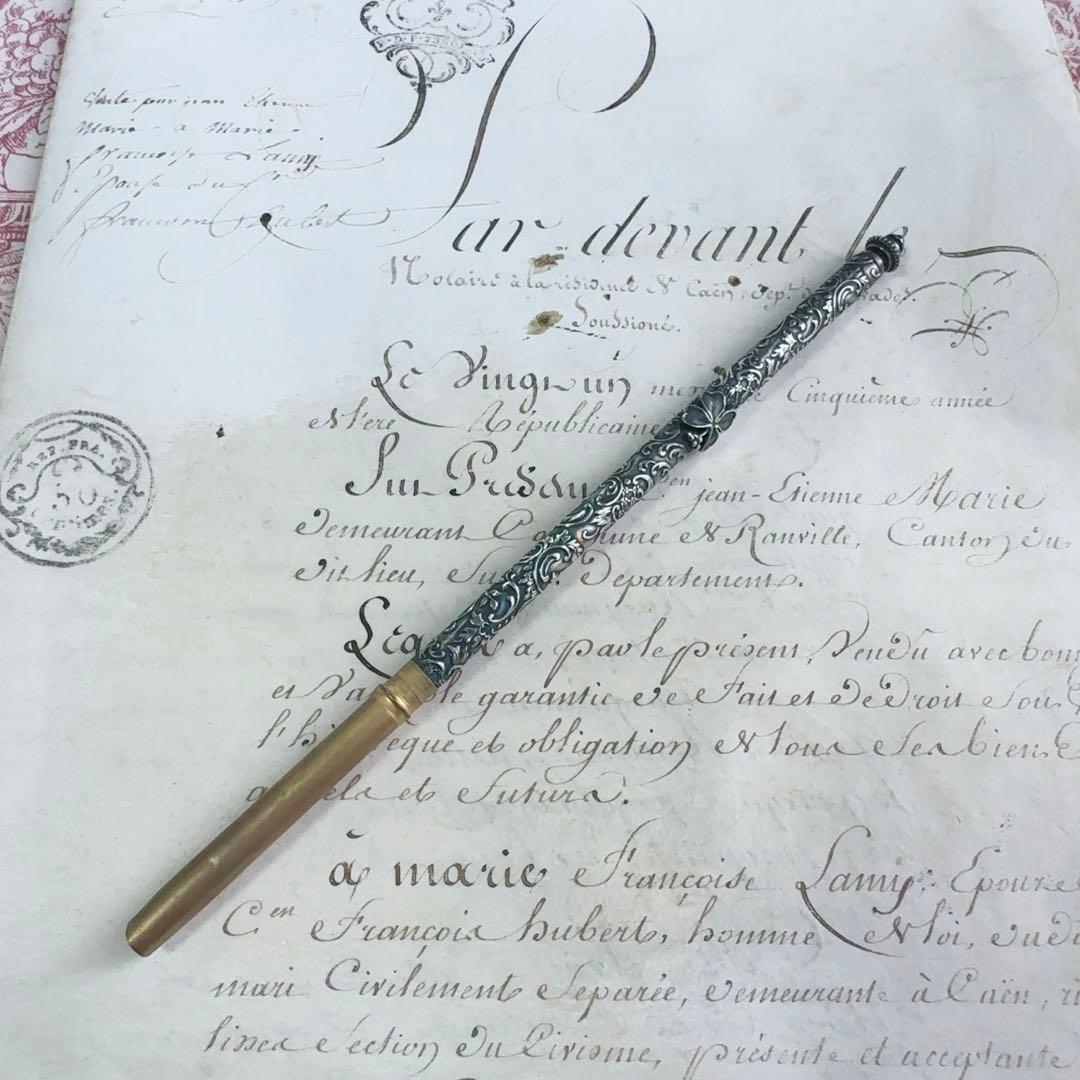 marie a marie
françoise Lamy
Epouse du Sr
Par devant
Notaire à la résidence de Caën, Dept. du
Soussigné.
Le Vingt un Cinquième année
de l'ère Républicaine
Fut Présent Cen jean-Etienne Marie
demeurant Commune de Ranville, Canton du
dit lieu, Département.
Lequel a, par le présent, Vendu avec
et garantie de fait et de droit sous
l'hipotèque et obligation de tous ses biens
et futurs.
à marie Françoise Lamy Epouse
Cen François hubert, homme de loi, sudit
mari Civilement Séparée, demeurante à Caën,
Section du Civisme, présente et acceptante
REP. FRA.